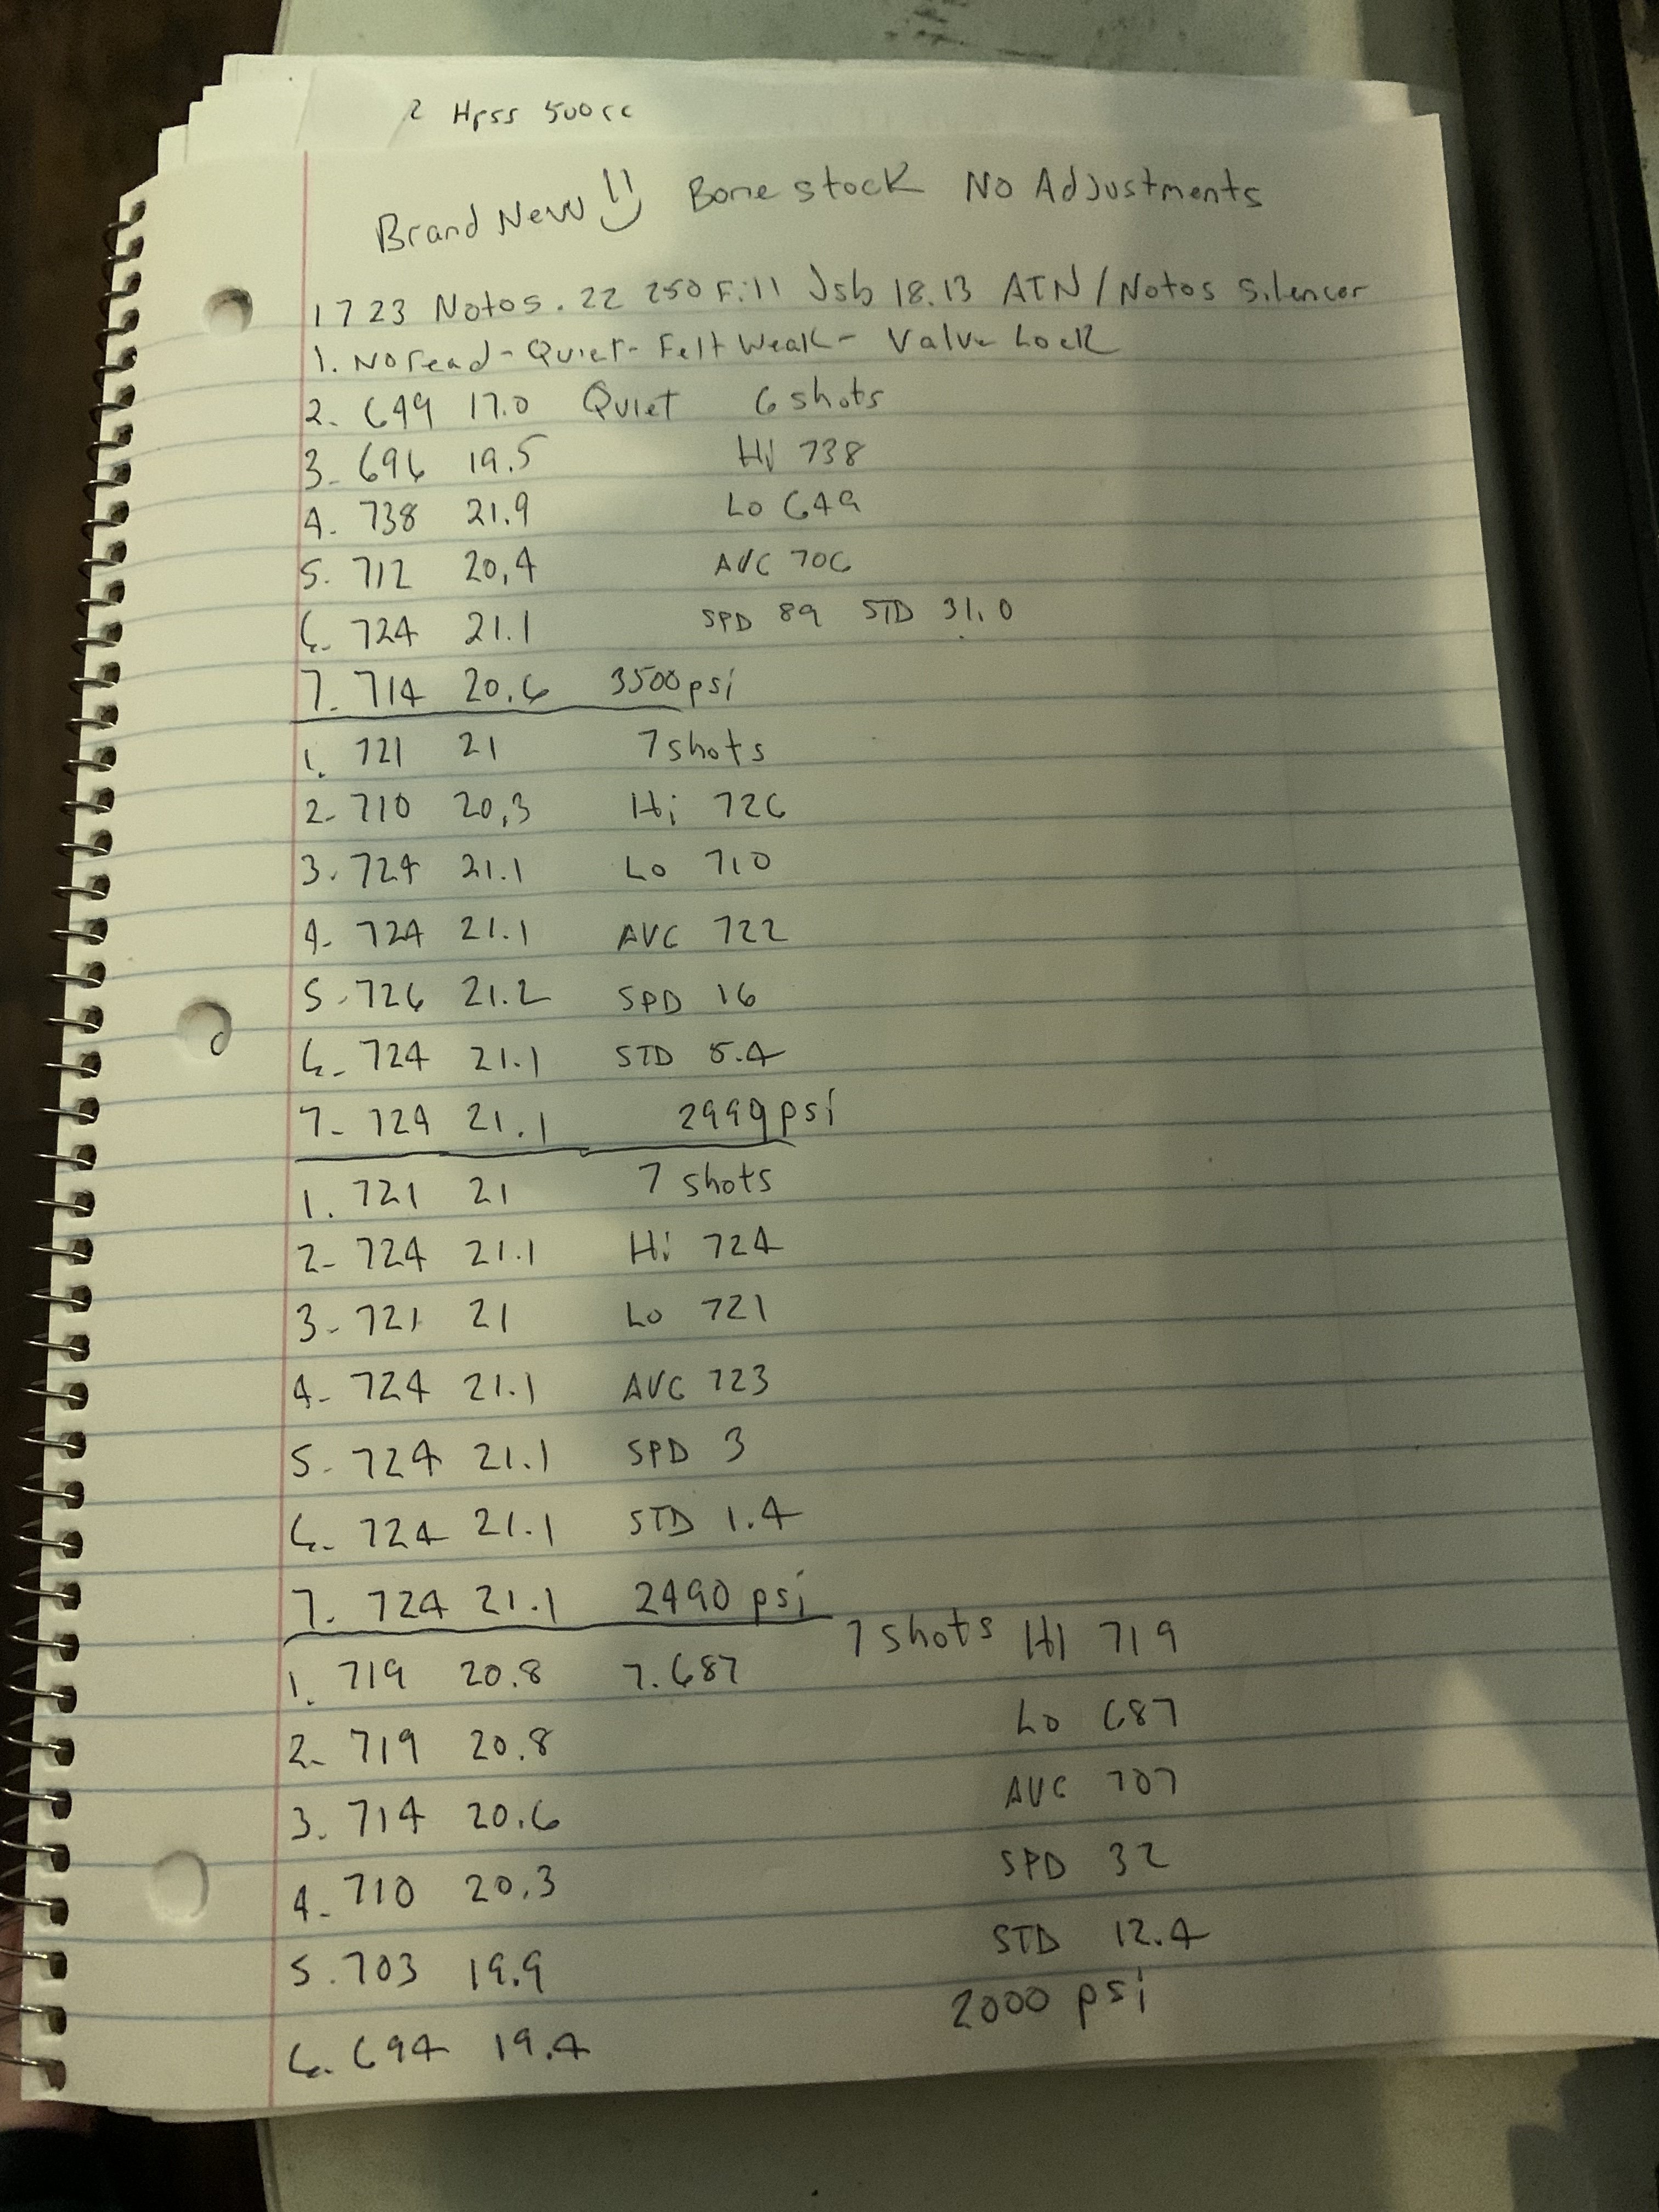 2 Hpss 500cc
Brand New!! Bone stock No Adjustments
1723 Notos .22 250 Fill Jsb 18.13 ATN/Notos Silencer
1. No read - Quiet - Felt Weak - Valve Lock
2. 649 17.0 Quiet 6 shots
3- 696 19.5 Hi 738
4. 738 21.9 Lo 649
5. 712 20,4 AVG 706
6- 724 21.1 SPD 89 STD 31.0
7- 714 20.6 3500 psi
1. 721 21 7 shots
2- 710 20,3 Hi 726
3. 724 21.1 Lo 710
4- 724 21.1 AVG 722
5-726 21.2 SPD 16
6- 724 21.1 STD 5.4
7- 724 21.1 2990 psi
1. 721 21 7 shots
2- 724 21.1 Hi 724
3- 721 21 Lo 721
4- 724 21.1 AVG 723
5- 724 21.1 SPD 3
6- 724 21.1 STD 1.4
7. 724 21.1 2490 psi
1. 719 20.8 7.687 7 shots HI 719
2- 719 20.8 Lo 687
3. 714 20.6 AVG 707
4- 710 20.3 SPD 32
5. 703 19.9 STD 12.4
6. 694 19.4 2000 psi